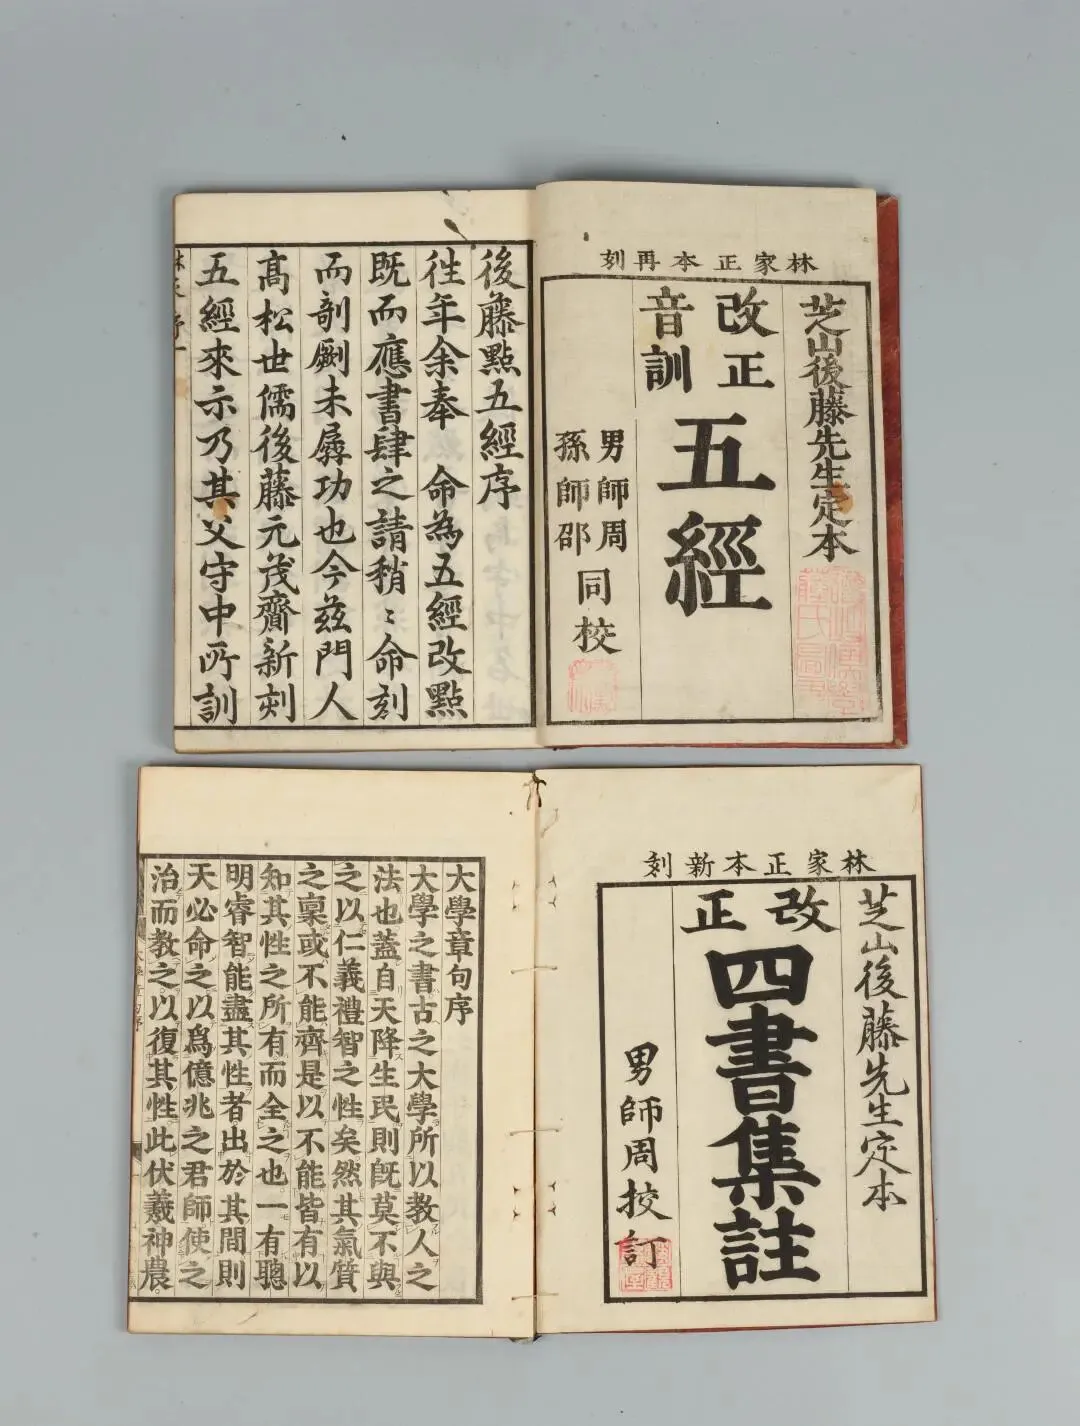 林家正本再刻
芝山後藤先生定本
改正
音訓
五經
男師周
孫師邵
同校
後藤點五經序
往年余奉 命為五經改點
既而應書肆之請稍〻命刻
而剞劂未竣功也今茲門人
高松世儒後藤元茂齎新刻
五經來示乃其父守中所訓
林家正本新刻
芝山後藤先生定本
改正
四書集註
男師周挍訂
大學章句序
大學之書古之大學所以教人之
法也蓋自天降生民則既莫不與
之以仁義禮智之性矣然其氣質
之稟或不能齊是以不能皆有以
知其性之所有而全之也一有聰
明睿智能盡其性者出於其間則
天必命之以爲億兆之君師使之
治而教之以復其性此伏羲神農